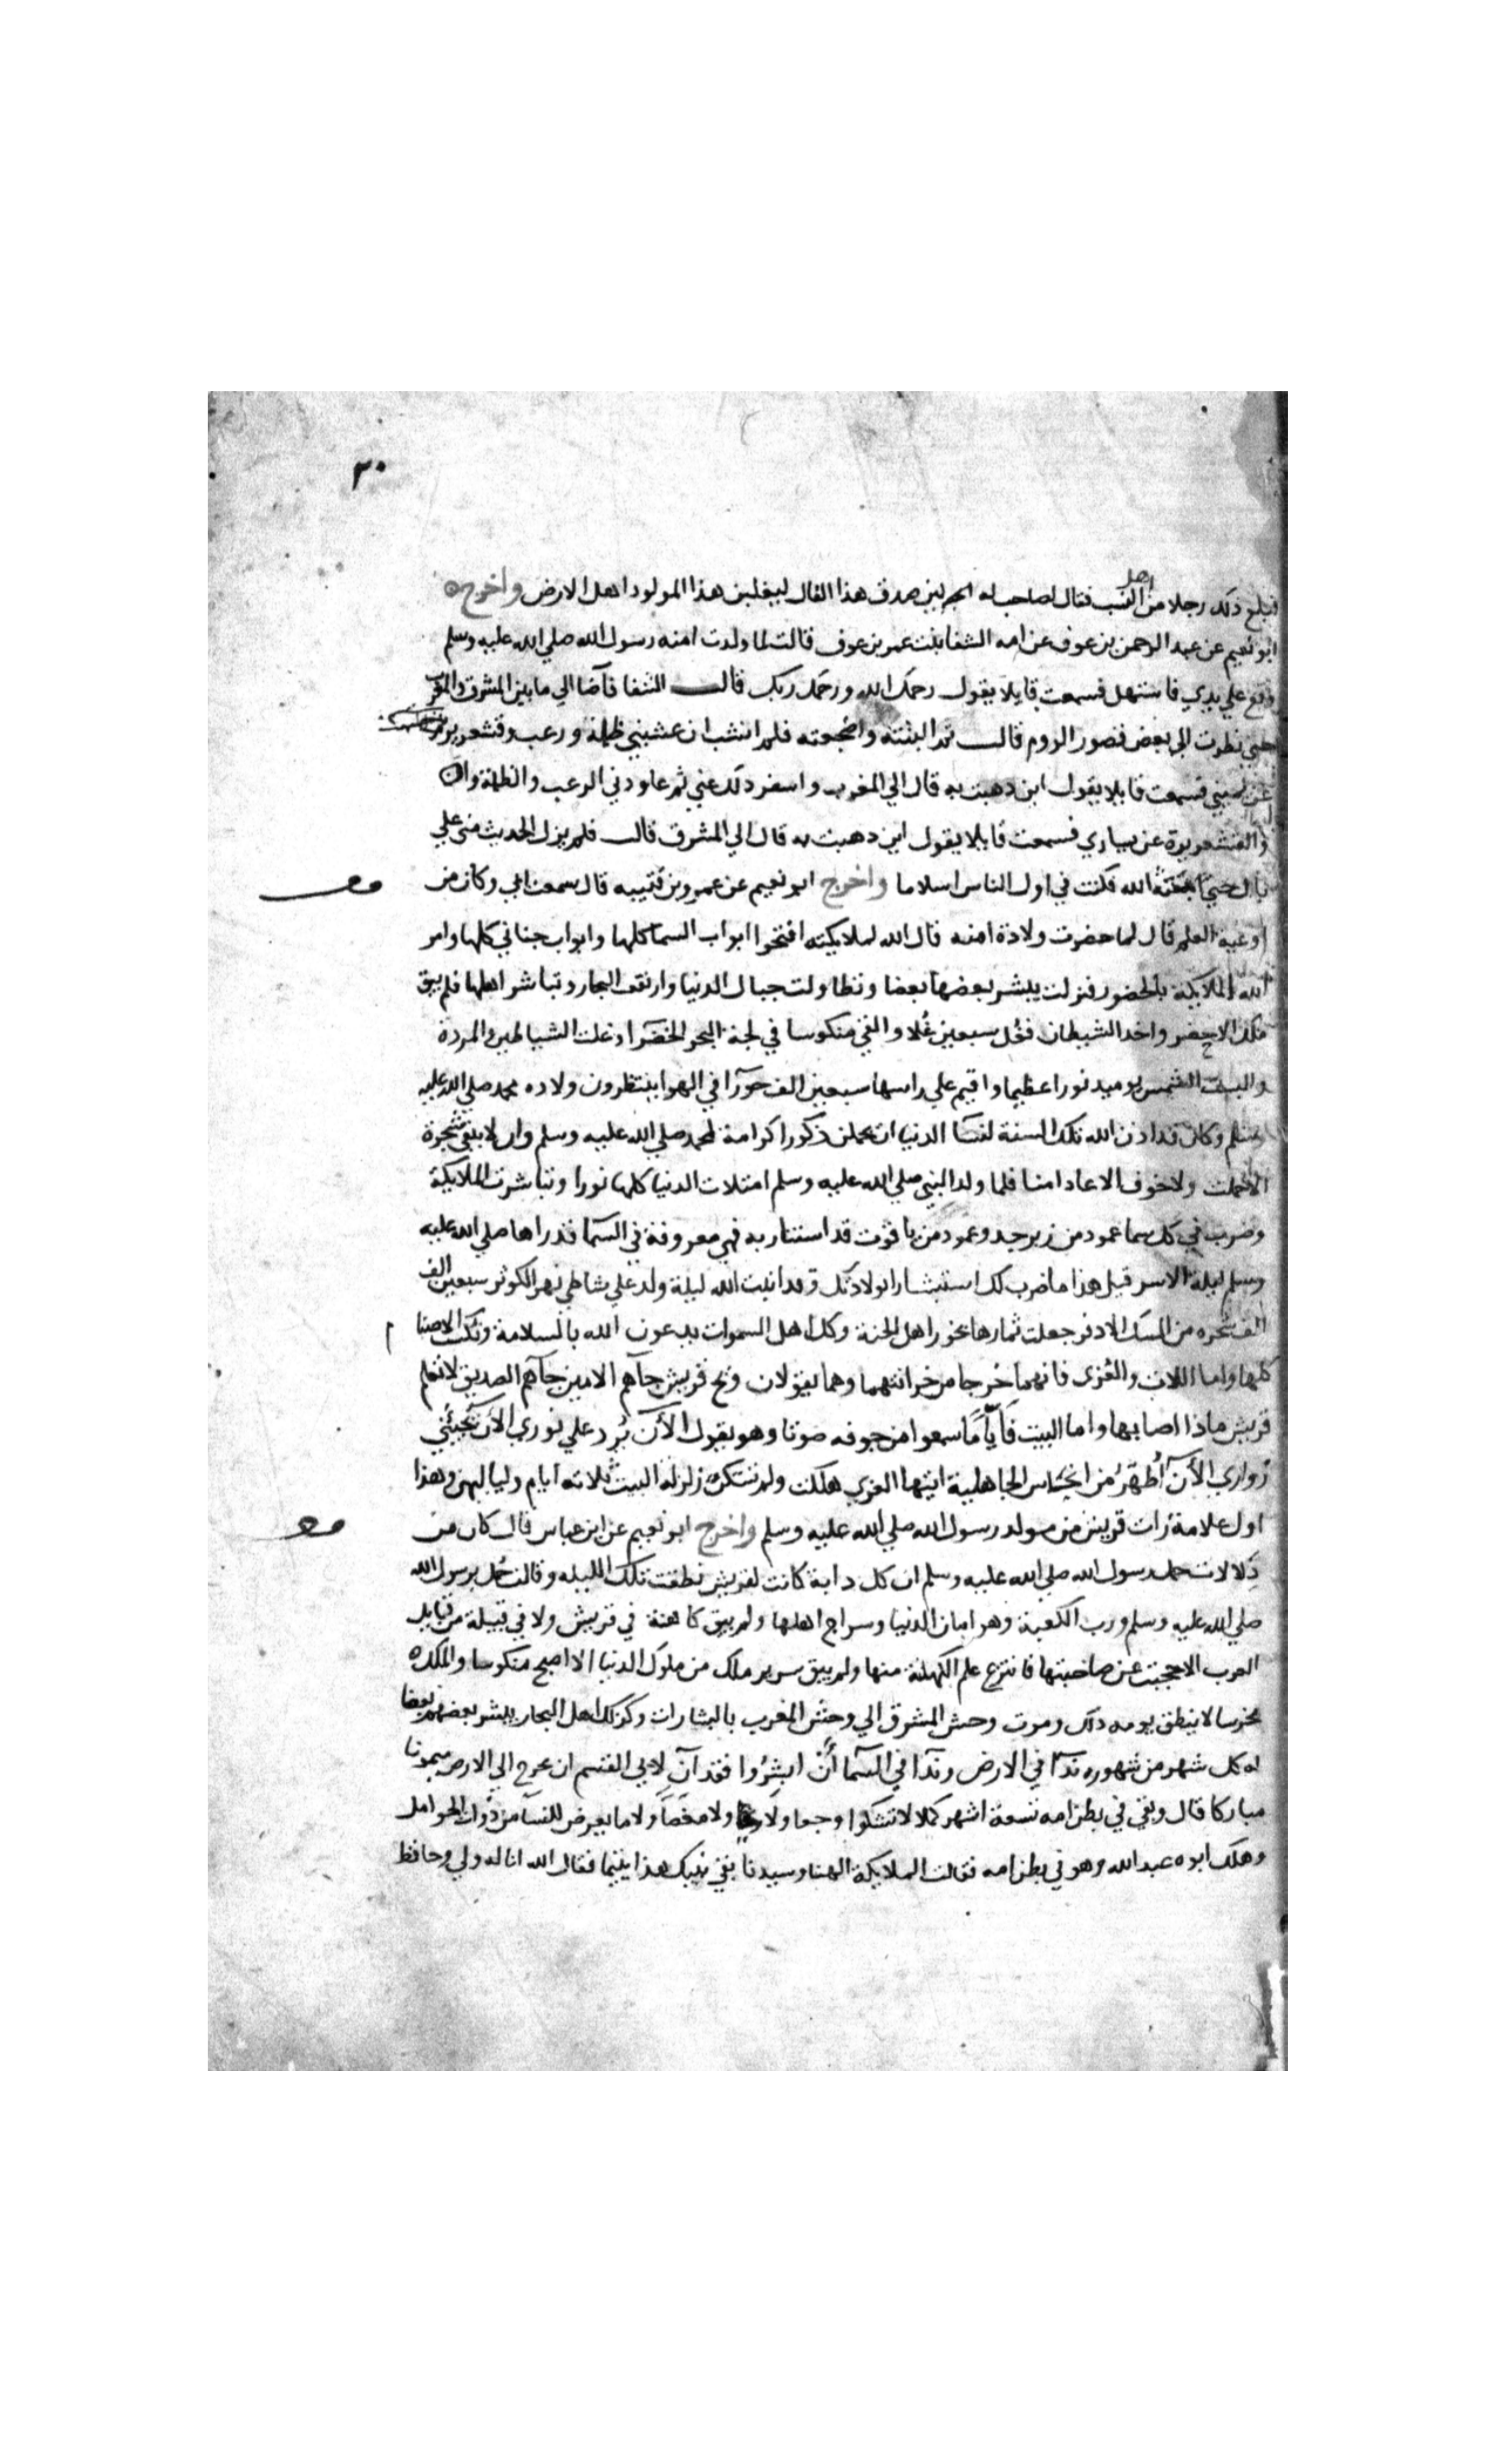 ٣٠
فبلغ ذلك رجلا من اهل لهب فقال لصاحب له لين صدق هذا الفال ليغلبن هذا المولود اهل الارض واخرج
ابو نعيم عن عبد الرحمن بن عوف عن امه الشفا بنت عمر بن عوف قالت لما ولدت امنه رسول الله صلي الله عليه وسلم
وقع علي يدي فاستهل فسمعت قايلا يقول رحمك الله ورحمك ربك قالت الشفا فآضا الي ما بين المشرق والمغرب
حتي نظرت الي بعض قصور الروم قالت ثم البنته واضجعته فلم انشب ان غشيتني ظلمة ورعب وقشعريرة
عن يميني فسمعت قايلا يقول اين ذهبت به قال الي المغرب واسفر ذلك عني ثم عاودني الرعب والظلمة
والقشعريرة عن يساري فسمعت قايلا يقول اين ذهبت به قال الي المشرق قالت فلم يزل الحديث مني علي
بال حتي ابتعثه الله فكنت في اول الناس اسلاما واخرج ابو نعيم عن عمرو بن قتيبه قال سمعت ابي وكان من
اوعية العلم قال لما حضرت ولادة امنه قال الله لملايكته افتحوا ابواب السما كلها وابواب جناني كلها وامر
الله الملايكة بالحضور فنزلت يبشر بعضها بعضا وتطاولت جبال الدنيا وارتفت البحار وتباشر اهلها فلم يبق
ملك الا حضر واخد الشيطان فغل سبعين غلا والقي منكوسا في لجة البحر الخضرا وغلت الشياطين والمردة
والبست الشمس يوميد نورا عظيما واقيم علي راسها سبعين الف حورآ في الهوا ينتظرون ولاده محمد صلي الله عليه
وسلم وكان قد اذن الله تلك السنة لنسآ الدنيا ان يحملن ذكورا كرامة لمحمد صلي الله عليه وسلم وان لا يبقي شجرة
الا حملت ولا خوف الا عاد امنا فلما ولد النبي صلي الله عليه وسلم امتلات الدنيا كلها نورا وتباشرت الملايكة
وضرب في كل سما عمود من زبرجد وعمود من ياقوت قد استنار به فهي معروفة في السما قد راها صلي الله عليه
وسلم ليلة الاسر قيل هذا ما ضرب لك استبشارا بولادتك وقد انبت الله ليلة ولد علي شاطي نهر الكوثر سبعين الف
الف شجره من المسك الادفر جعلت ثمارها بخور اهل الجنة وكل اهل السموات يدعون الله بالسلامة ونكست الاصنا
م
كلها واما اللات والعزى فانهما خرجا من خزانتهما وهما يقولان ويح قريش جآهم الامين جآهم الصديق لا تعلم
قريش ماذا اصابها واما البيت فأيأما سمعوا من جوفه صوتا وهو يقول الآن يرد علي نوري الآن يجيئني
زواري الآن أطهر من انجاس الجاهلية ايتها العزي هلكت ولم تسكن زلزلة البيت ثلاثه ايام ولياليهن وهذا
اول علامة رات قريش من مولد رسول الله صلي الله عليه وسلم واخرج ابو نعيم عن ابن عباس قال كان من
دلالات حمل رسول الله صلي الله عليه وسلم ان كل دابة كانت لقريش نطقت تلك الليله وقالت حمل برسول الله
صلي الله عليه وسلم ورب الكعبة وهو امان الدنيا وسراج اهلها ولم يبق كاهنة في قريش ولا في قبيلة من قبايل
العرب الا حجبت عن صاحبتها فانتزع علم الكهنة منها ولم يبق سرير ملك من ملوك الدنيا الا اصبح منكوسا والملك
مخرسا لا ينطق يومه ذلك ومرت وحش المشرق الي وحش المغرب بالبشارات وكذلك اهل البحار يبشر بعضهم بعضا
له كل شهر من شهوره ندآ في الارض وندآ في السمآ أن ابشروا فقد آن لابي القسم ان يخرج الي الارض ميمونا
مباركا قال وبقي في بطن امه تسعة اشهر كملا لا تشكوا وجعا ولا ريحا ولا مغصا ولا ما يعرض للنسآ من ذوات الحوامل
وهلك ابوه عبد الله وهو في بطن امه فقالت الملايكة الهنا وسيدنا بقي نبيك هذا يتيما فقال الله انا له ولي وحافظ